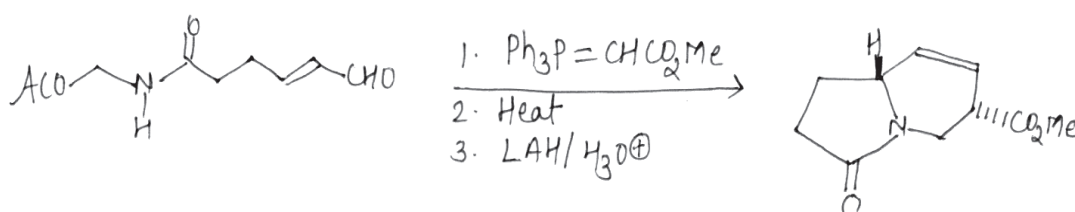 AcO
N
H
O
CHO
1. Ph₃P=CHCO₂Me
2. Heat
3. LAH/H₃O⊕
H
N
O
CO₂Me